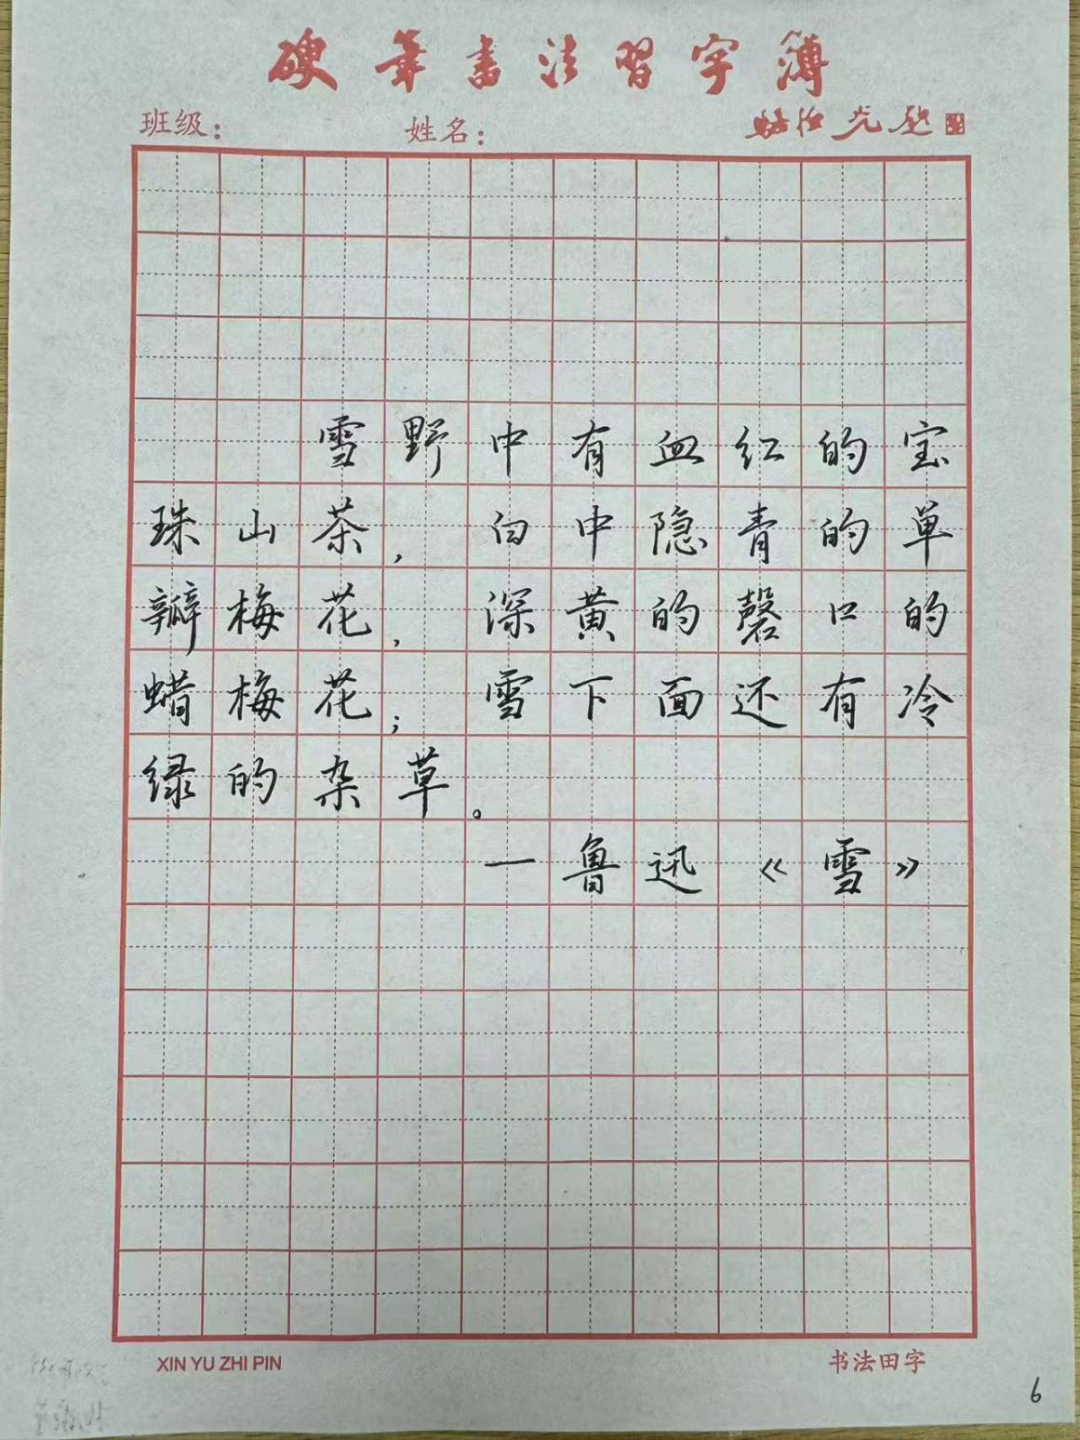 硬筆書法習字薄
班级: 姓名:
雪野中有血红的宝
珠山茶，白中隐青的单
瓣梅花，深黄的磬口的
蜡梅花；雪下面还有冷
绿的杂草。
一鲁迅《雪》
XIN YU ZHI PIN 书法田字
6